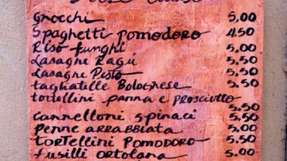 gnocchi 5,00
Spaghetti pomodoro 4,50
Riso funghi 5,00
Lasagne Ragù 5,50
Lasagne Pesto 5,50
tagliatelle Bolognese 5,50
tortellini panna e prosciutto 5,50
cannelloni spinaci 5,50
Penne arrabbiata 5,00
TORTELLINI POMODORO 5,50
fusilli ortolana 5,00